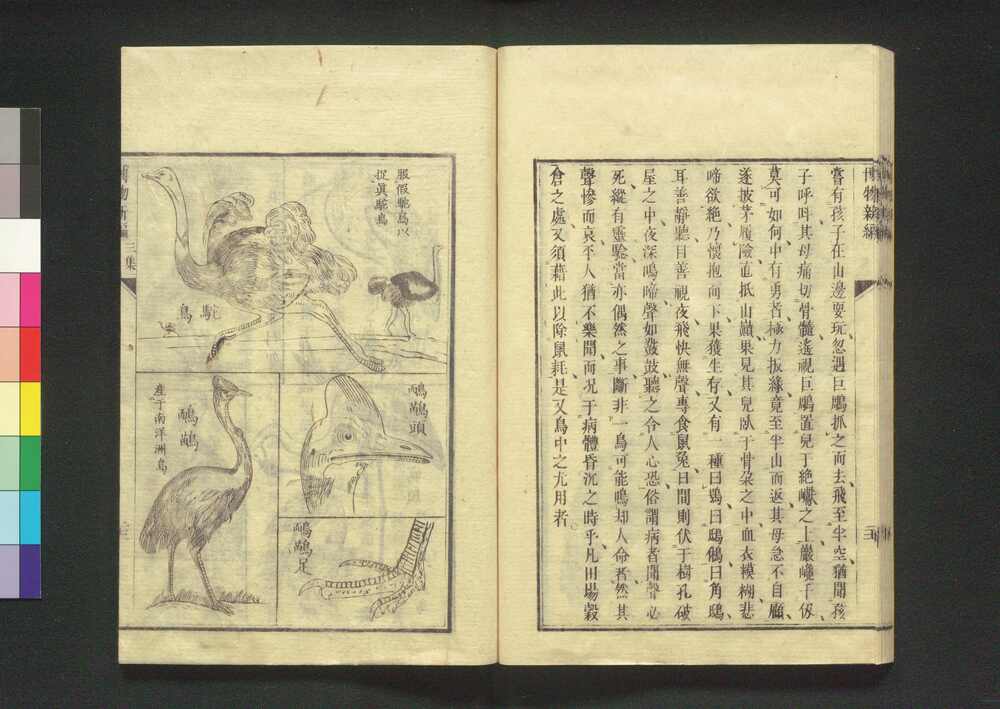 博物新編
嘗有孩子在山邊耍玩忽遇巨鵰抓之而去飛至半空猶聞孩
子呼呌其母痛切骨髓遙視巨鵰置兒于絕巘之上巖巉千仭
莫可如何中有勇者極力扳緣竟至半山而返其母急不自顧
遂披茅履險直抵山巔果見其兒臥于骨朶之中血衣模糊悲
啼欲絕乃懷抱而下果獲生存又有一種曰鴞曰鴟鵂曰角鴟
耳善靜聽目善視夜飛快無聲專食鼠兔日間則伏于樹孔破
屋之中夜深鳴啼聲如鼓聽之令人心恐俗謂病者聞聲必
死縱有靈驗當亦偶然之事斷非一鳥可能鳴却人命者然其
聲慘而哀平人猶不樂聞而况于病體昏沉之時乎凡田場穀
倉之處又須藉此以除鼠耗是又鳥中之尤用者
服假駝鳥以
捉眞駝鳥
駝鳥
鴯鶓頭
鴯鶓
產于南洋洲島
鴯鶓足
三集